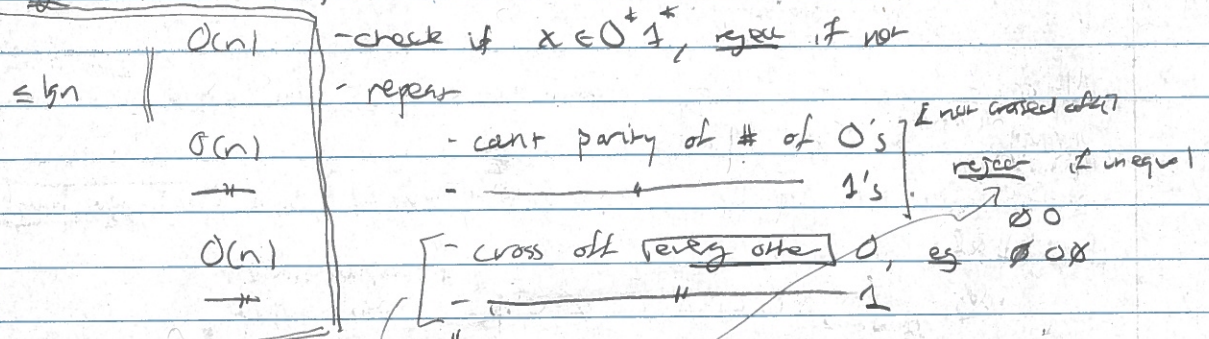 O(n) - check if x ∈ 0*1*, reject if not
≤ lgn - repeat
O(n) - count parity of # of 0's [not crossed off]
—〃— - —〃— 1's reject if unequal
0̸ 0
O(n) - cross off every other 0, eg 0̸ 0 0̸
—〃— - —〃— 1